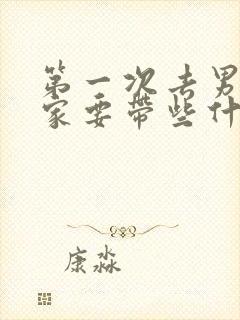 第一次去男
家要带些什
康淼